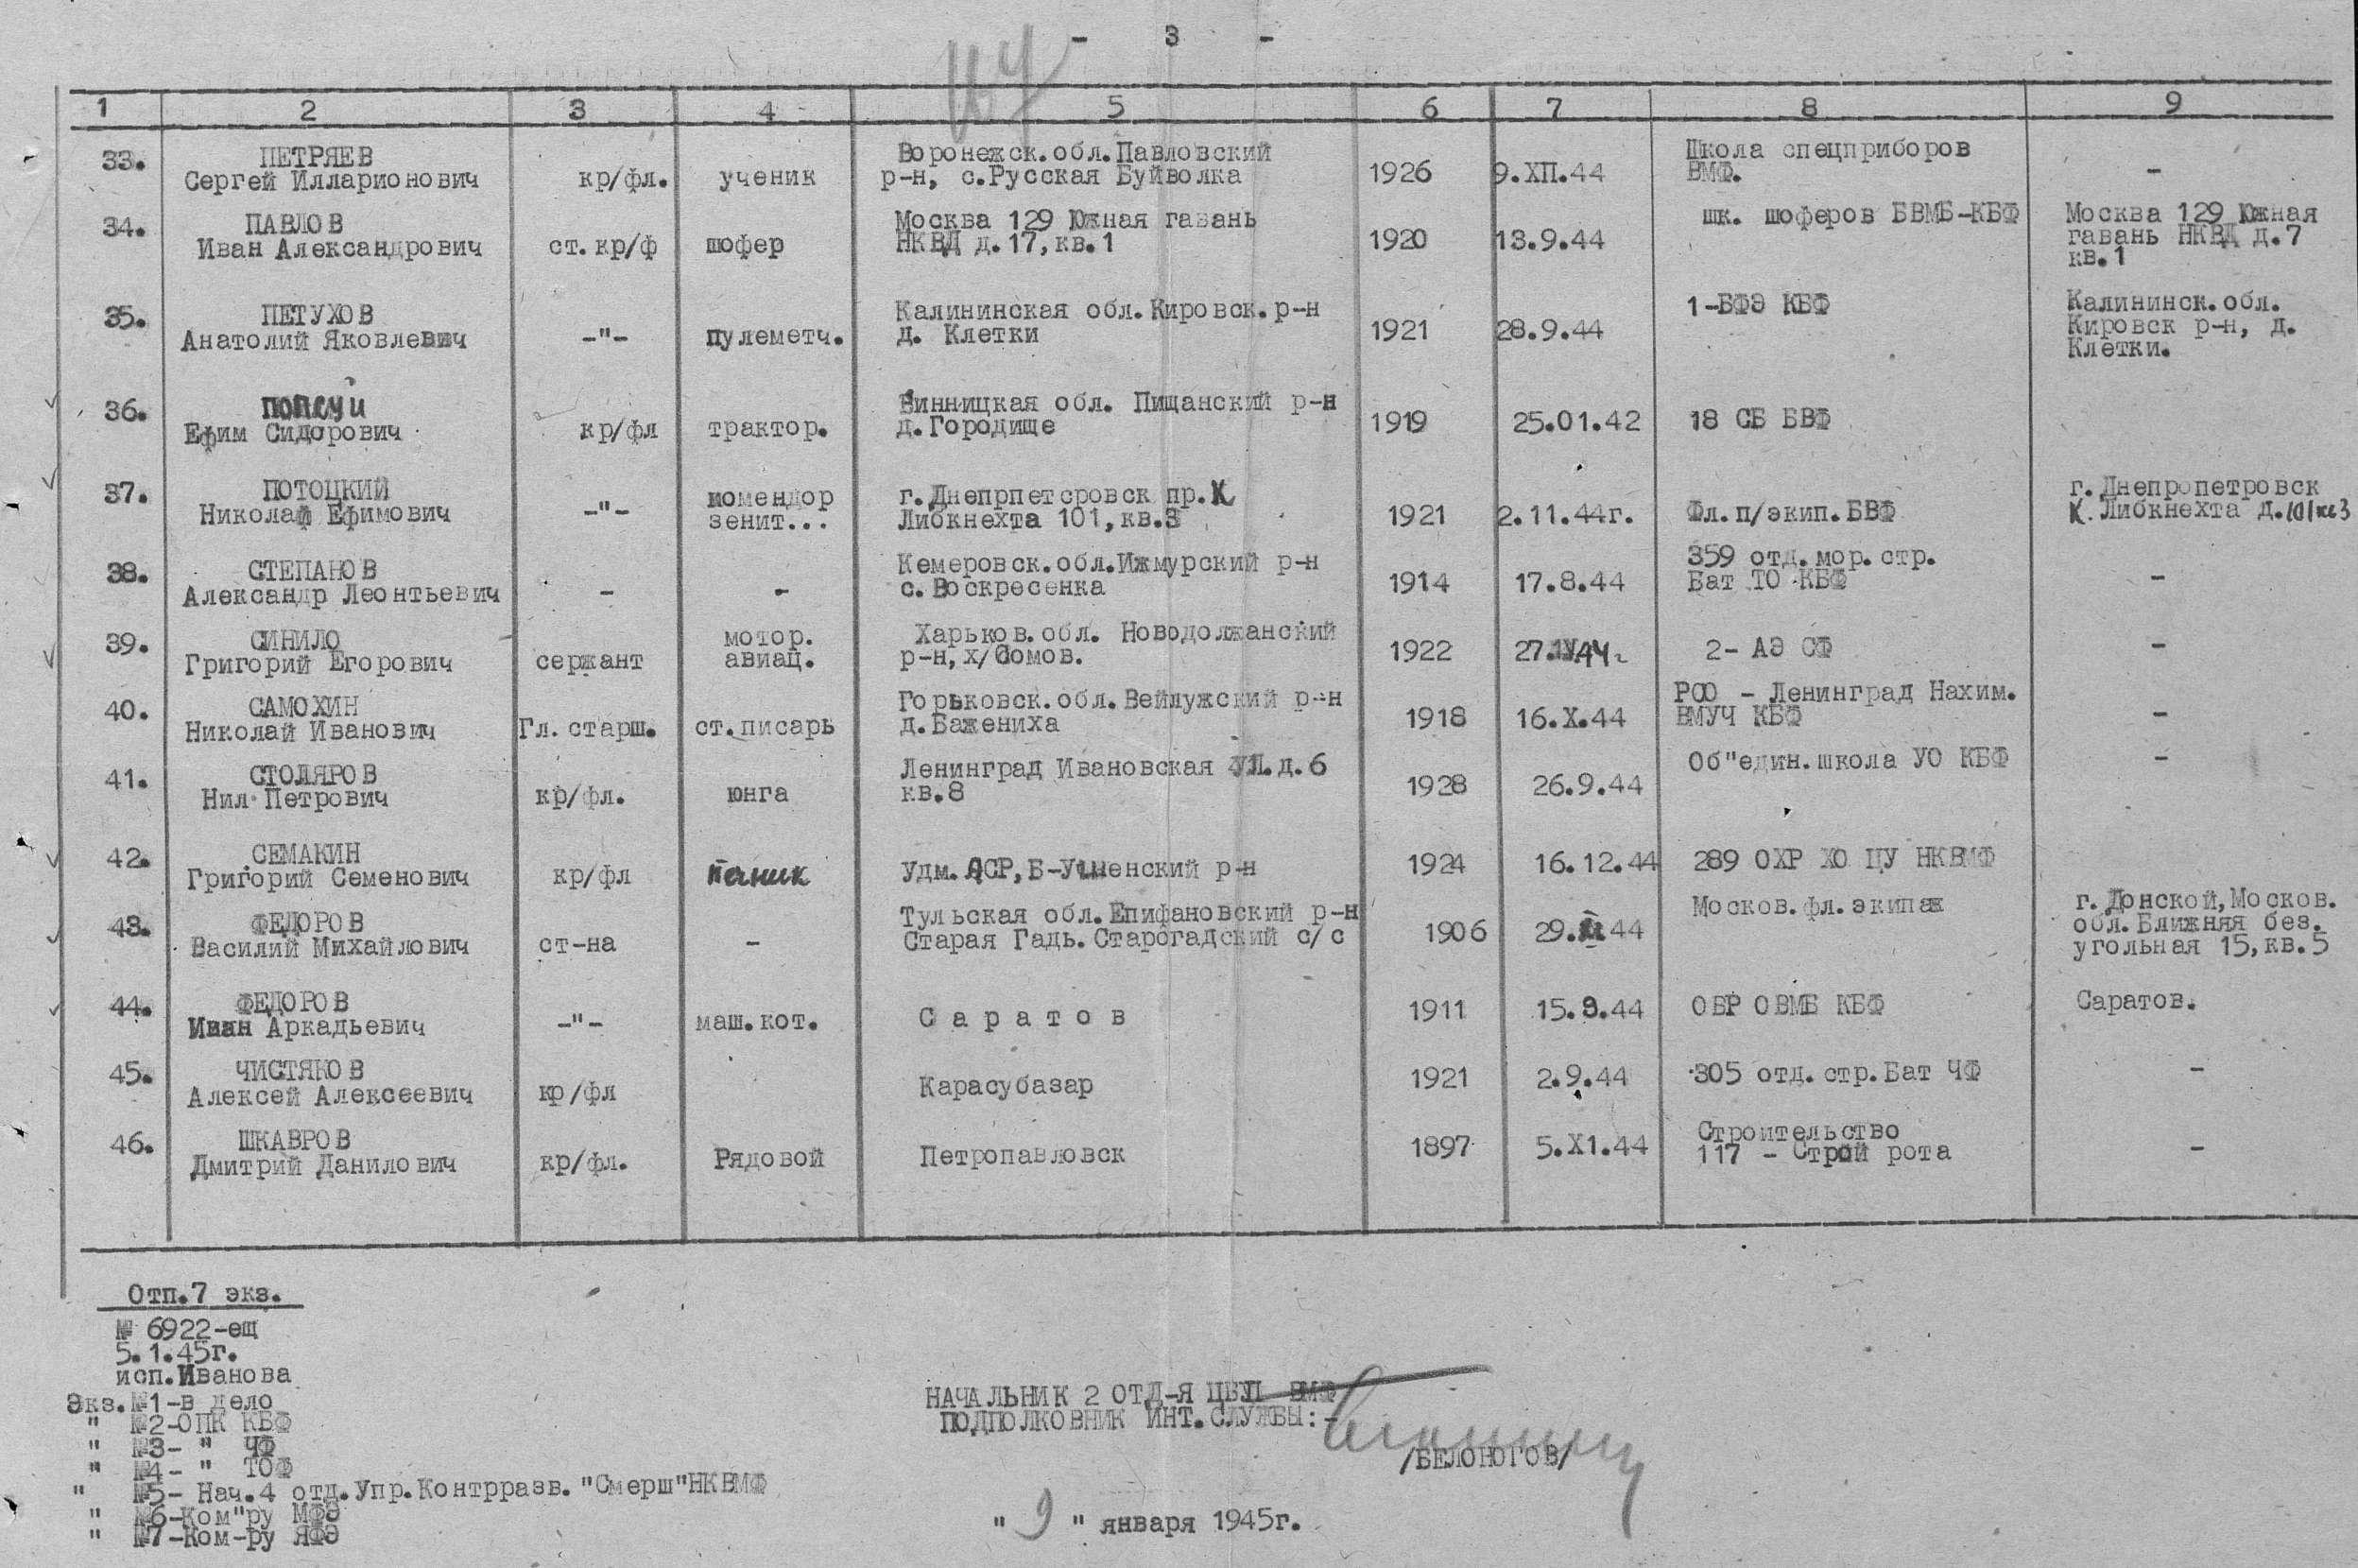 - 3 -
1 2 3 4 5 6 7 8 9
33. ПЕТРЯЕВ
Сергей Илларионович
кр/фл.
ученик
Воронежск.обл.Павловский
р-н, с.Русская Буйволка
1926
9.ХП.44
Школа спецприборов
ВМФ.
-
34. ПАВЛОВ
Иван Александрович
ст.кр/ф
шофер
Москва 129 Южная гавань
НКВД д.17,кв.1
1920
13.9.44
шк. шоферов БВМБ-КБФ
Москва 129 Южная
гавань НКВД д.7
кв.1
35. ПЕТУХОВ
Анатолий Яковлевич
-"-
пулеметч.
Калининская обл.Кировск.р-н
д. Клетки
1921
28.9.44
1-БФЭ КБФ
Калининск.обл.
Кировск р-н, д.
Клетки.
36. ПОПСУЙ
Ефим Сидорович
кр/фл
трактор.
Винницкая обл. Пищанский р-н
д.Городище
1919
25.01.42
18 СБ БВФ
37. ПОТОЦКИЙ
Николай Ефимович
-"-
комендор
зенит...
г.Днепрпетсровск пр.К
Либкнехта 101,кв.3
1921
2.11.44г.
Фл.п/экип.БВФ
г.Днепропетровск
К.Либкнехта д.101 кв3
38. СТЕПАНОВ
Александр Леонтьевич
-
-
Кемеровск.обл.Ижмурский р-н
с.Воскресенка
1914
17.8.44
359 отд.мор.стр.
Бат ТО КБФ
-
39. СИНИЛО
Григорий Егорович
сержант
мотор.
авиац.
Харьков.обл. Новодолжанский
р-н,х/Сомов.
1922
27.1У.44г
2- АЭ СФ
-
40. САМОХИН
Николай Иванович
Гл.старш.
ст.писарь
Горьковск.обл.Вейлужский р-н
д.Бажениха
1918
16.Х.44
РОО - Ленинград Нахим.
ВМУЧ КБФ
-
41. СТОЛЯРОВ
Нил Петрович
кр/фл.
юнга
Ленинград Ивановская ул.д.6
кв.8
1928
26.9.44
Об"един.школа УО КБФ
-
42. СЕМАКИН
Григорий Семенович
кр/фл
Удм.АСР,Б-Учиенский р-н
1924
16.12.44
289 ОХР ХО ЦУ НКВМФ
43. ФЕДОРОВ
Василий Михайлович
ст-на
-
Тульская обл.Епифановский р-н
Старая Гадь.Старогадский с/с
1906
29. 44
Москов.фл.экипаж
г.Донской,Москов.
обл.Ближняя без.
угольная 15,кв.5
44. ФЕДОРОВ
Иван Аркадьевич
-"-
маш.кот.
С а р а т о в
1911
15.9.44
ОВР ОВМБ КБФ
Саратов.
45. ЧИСТЯКОВ
Алексей Алексеевич
кр/фл
Карасубазар
1921
2.9.44
305 отд.стр.Бат ЧФ
-
46. ШКАВРОВ
Дмитрий Данилович
кр/фл.
Рядовой
Петропавловск
1897
5.Х1.44
Строительство
117 - Строй рота
-
Отп.7 экз.
№ 6922-ещ
5.1.45г.
исп.Иванова
Экз.№1-в дело
" №2-ОПК КБФ
" №3- " ЧФ
" №4- " ТОФ
" №5- Нач.4 отд.Упр.Контрразв."Смерш"НКВМФ
" №6-Ком"ру МФЭ
" №7-Ком-ру ЯФЭ
НАЧАЛЬНИК 2 ОТД-Я ЦВУЛ ВМФ
ПОДПОЛКОВНИК ИНТ.СЛУЖБЫ:-
/БЕЛОНОГОВ/
" 9 " января 1945г.